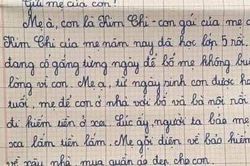 Gửi mẹ của con!
Mẹ à, con là Kim Chi - con gái của mẹ
Kim Chi của mẹ năm nay đã học lớp 5 rồi
đang cố gắng từng ngày để bố mẹ không bu
lòng vì con. Mẹ ạ, từ ngày sinh con được
tuổi, mẹ để con ở nhà với bố và bà nội rồi
đi kiếm tiền ở xa. Lúc ấy người ta bảo mẹ
xa lắm tiền lắm. Mẹ gọi điện về bảo kiếm
về xây nhà, mua quần áo đẹp cho con.